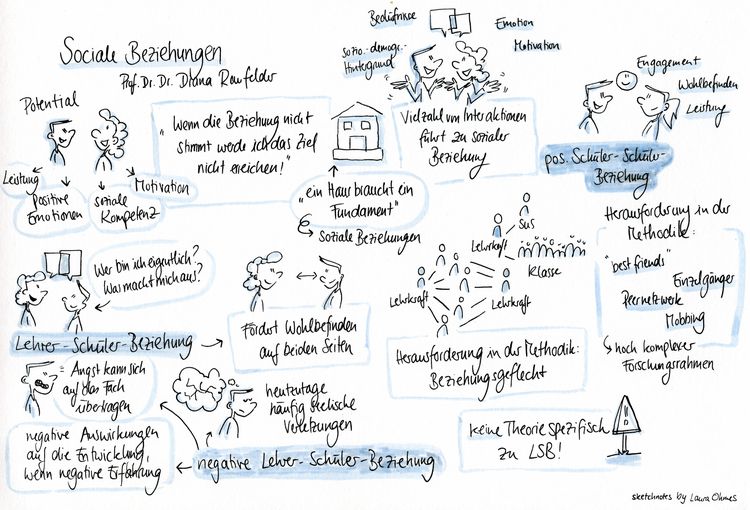 Soziale Beziehungen
Prof. Dr. Dr. Diana Raufelder
Potential
Leistung
positive
Emotionen
soziale
Kompetenz
Motivation
"Wenn die Beziehung nicht
stimmt werde ich das Ziel
nicht erreichen!"
"ein Haus braucht ein
Fundament"
Soziale Beziehungen
Bedürfnisse
sozio.-demogr.-
Hintergrund
Emotion
Motivation
Vielzahl von Interaktionen
führt zu sozialer
Beziehung
Engagement
Wohlbefinden
Leistung
pos. Schüler-Schüler-
Beziehung
Herausforderung in der
Methodik:
"best friends"
Einzelgänger
Peernetzwerk
Mobbing
noch komplexer
Forschungsrahmen
Wer bin ich eigentlich?
Was macht mich aus?
Lehrer-Schüler-Beziehung
Fördert Wohlbefinden
auf beiden Seiten
SuS
Lehrkraft
Klasse
Lehrkraft
Lehrkraft
Herausforderung in der Methodik:
Beziehungsgeflecht
Angst kann sich
auf das Fach
übertragen
negative Auswirkungen
auf die Entwicklung,
wenn negative Erfahrung
heutzutage
häufig seelische
Verletzungen
negative Lehrer-Schüler-Beziehung
keine Theorie spezifisch
zu LSB!
sketchnotes by Laura Ohmes